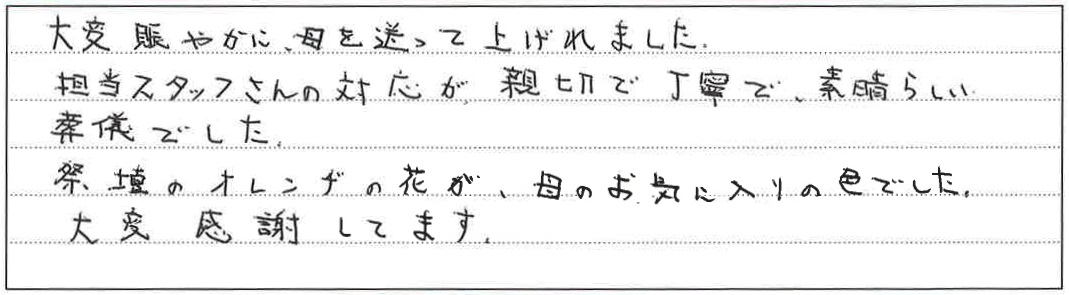 大変賑やかに、母を送って上げれました。
担当スタッフさんの対応が、親切で丁寧で、素晴らしい
葬儀でした。
祭壇のオレンヂの花が、母のお気に入りの色でした。
大変感謝してます。